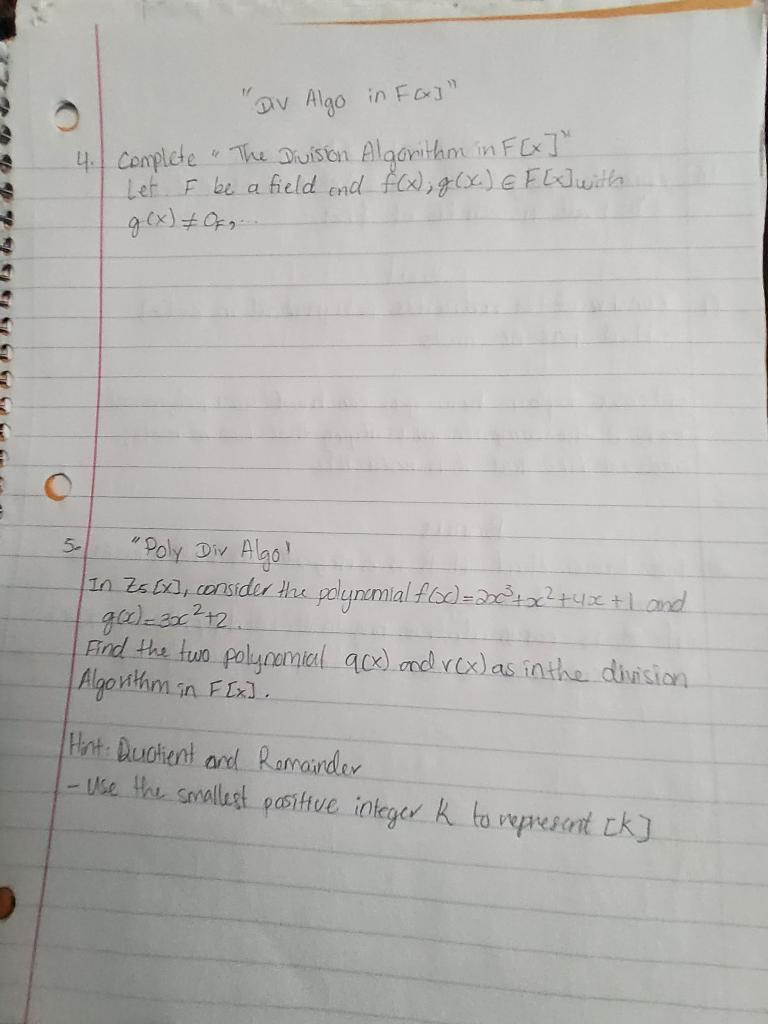 "Div Algo in F[x]"
4. Complete "The Division Algorithm in F[x]"
Let F be a field and f(x), g(x) ∈ F[x] with
g(x) ≠ 0F, ...
5. "Poly Div Algo'
In Z5[x], consider the polynomial f(x)=2x³+x²+4x+1 and
g(x)=3x²+2.
Find the two polynomial q(x) and r(x) as in the division
Algorithm in F[x].
Hint: Quotient and Remainder
- Use the smallest positive integer k to represent [k]